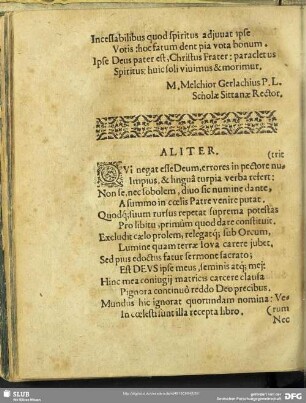 Incessabilibus quod spiritus adjuvat ipse
Votis: hoc fatum dent pia vota bonum.
Ipse Deus pater est, Christus Frater: paracletus
Spiritus: huic soli vivimus & morimur.
M. Melchior Gerlachius P. L.
Scholæ Sittanæ Rector.
ALITER.
(trit
QVi negat esse Deum, errores in pectore nu-
Impius, & linguâ turpia verba refert:
Non se, nec sobolem, divo sic numine dante,
A summo in cœlis Patre venire putat.
Quodq; suum rursus repetat suprema potestas
Pro libitu, primùm quod dare constituit.
Excludit cælo prolem, relegatq; sub Orcum,
Lumine quam terræ Iova carere jubet.
Sed pius edoctus fatur sermone sacrato;
Est DEVS ipse meus, seminis atq; mei:
Hinc mea conjugij matricis carcere clausa
Pignora continuò reddo Deo precibus.
Mundus hic ignorat quorundam nomina: Ve-
In cœlesti sunt illa recepta libro.
(rum
Nec
SLUB
DFG